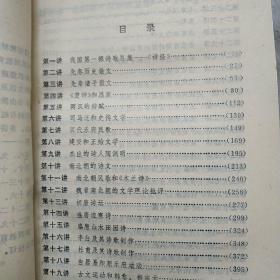 目录
第一讲 我国第一部诗歌总集——《诗经》
第二讲 先秦历史散文 (31)
第三讲 先秦诸子散文
第四讲 《楚辞》和屈原
第五讲 两汉的辞赋 (112)
第六讲 司马迁和史传文学 (130)
第七讲 汉代乐府民歌 (149)
第八讲 建安和正始文学 (165)
第九讲 杰出的诗人陶渊明 (195)
第十讲 南北朝的 (220)
第十一讲 南北朝民歌和《木兰诗》 (246)
第十二讲 魏晋南北朝的文学理论批评 (260)
第十三讲 初唐诗坛 (279)
第十四讲 盛唐边塞诗 (299)
第十五讲 盛唐山水田园诗 (324)
第十六讲 李白及其诗歌创作 (345)
第十七讲 杜甫及其诗歌创作 (372)
第十八讲 白居易和新乐府运动 (395)
第十九讲 古文运动和韩愈、柳宗元